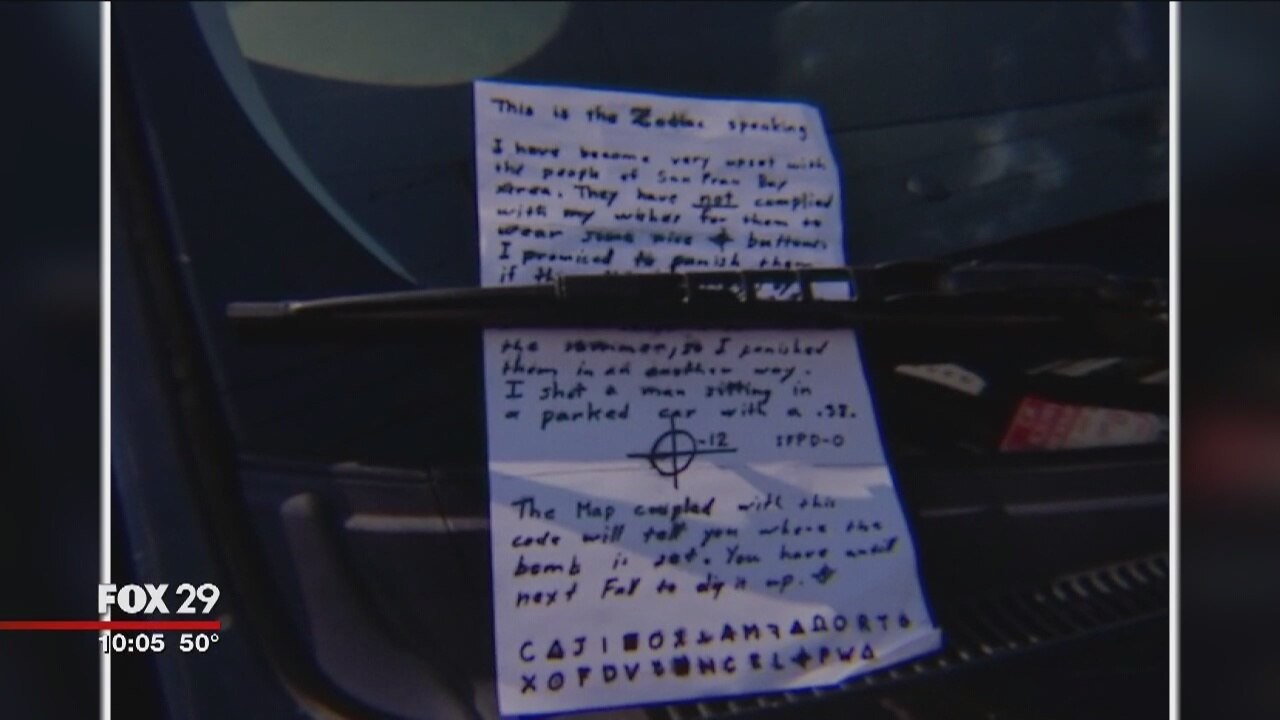 This is the Zodiac speaking
I have become very upset with
the people of San Fran Bay
Area. They have not complied
with my wishes for them to
wear some nice ⌖ buttons.
I promised to punish them
if
the summer, so I punished
them in an another way.
I shot a man sitting in
a parked car with a .38.
⌖-12 SFPD-0
The Map coupled with this
code will tell you where the
bomb is set. You have until
next Fall to dig it up. ⌖
C Δ J I ■ O
X F D V N C E L ⌖ P W Δ
FOX 29
10:05 50°